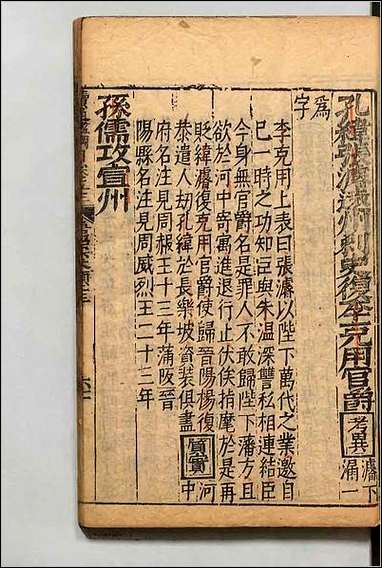 孔緯張濬遠州刺史復李克用官爵 考異 濬下漏一
爲字
李克用上表曰張濬以陛下萬代之業邀自
己一時之功知臣與朱溫深讐私相連結臣
今身無官爵名是罪人不敢歸陛下藩方且
欲於河中寄寓進退行止伏俟指麾於是再
貶緯濬復克用官爵使歸晉陽楊復
恭遣人劫孔緯於長樂坡資裝俱盡 質實 河中
府名注見周赧王十三年蒲阪晉
陽縣名注見周威烈王二十三年
孫儒攻宣州